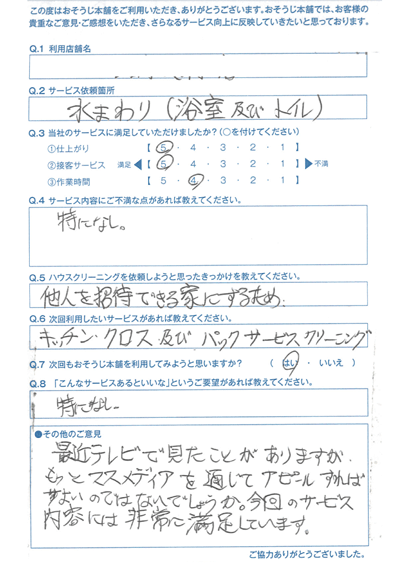 この度はおそうじ本舗をご利用いただき、ありがとうございます。おそうじ本舗では、お客様の
貴重なご意見・ご感想をいただき、さらなるサービス向上に反映していきたいと思っております。
Q.1 利用店舗名
Q.2 サービス依頼箇所
水まわり（浴室及びトイレ）
Q.3 当社のサービスに満足していただけましたか？（○を付けてください）
①仕上がり 【 5 ・ 4 ・ 3 ・ 2 ・ 1 】
②接客サービス 満足 ◀【 5 ・ 4 ・ 3 ・ 2 ・ 1 】▶ 不満
③作業時間 【 5 ・ 4 ・ 3 ・ 2 ・ 1 】
Q.4 サービス内容にご不満な点があれば教えてください。
特になし。
Q.5 ハウスクリーニングを依頼しようと思ったきっかけを教えてください。
他人を招待できる家にするため.
Q.6 次回利用したいサービスがあれば教えてください。
キッチン・クロス及びパックサービスクリーニング
Q.7 次回もおそうじ本舗を利用してみようと思いますか？ （ はい ・ いいえ ）
Q.8 「こんなサービスあるといいな」というご要望があれば教えてください。
特になし
●その他のご意見
最近テレビで見たことがありますが.
もっとマスメディアを通じてアピールすれば
よいのではないでしょうか。今回のサービス
内容には非常に満足しています。
ご協力ありがとうございました。